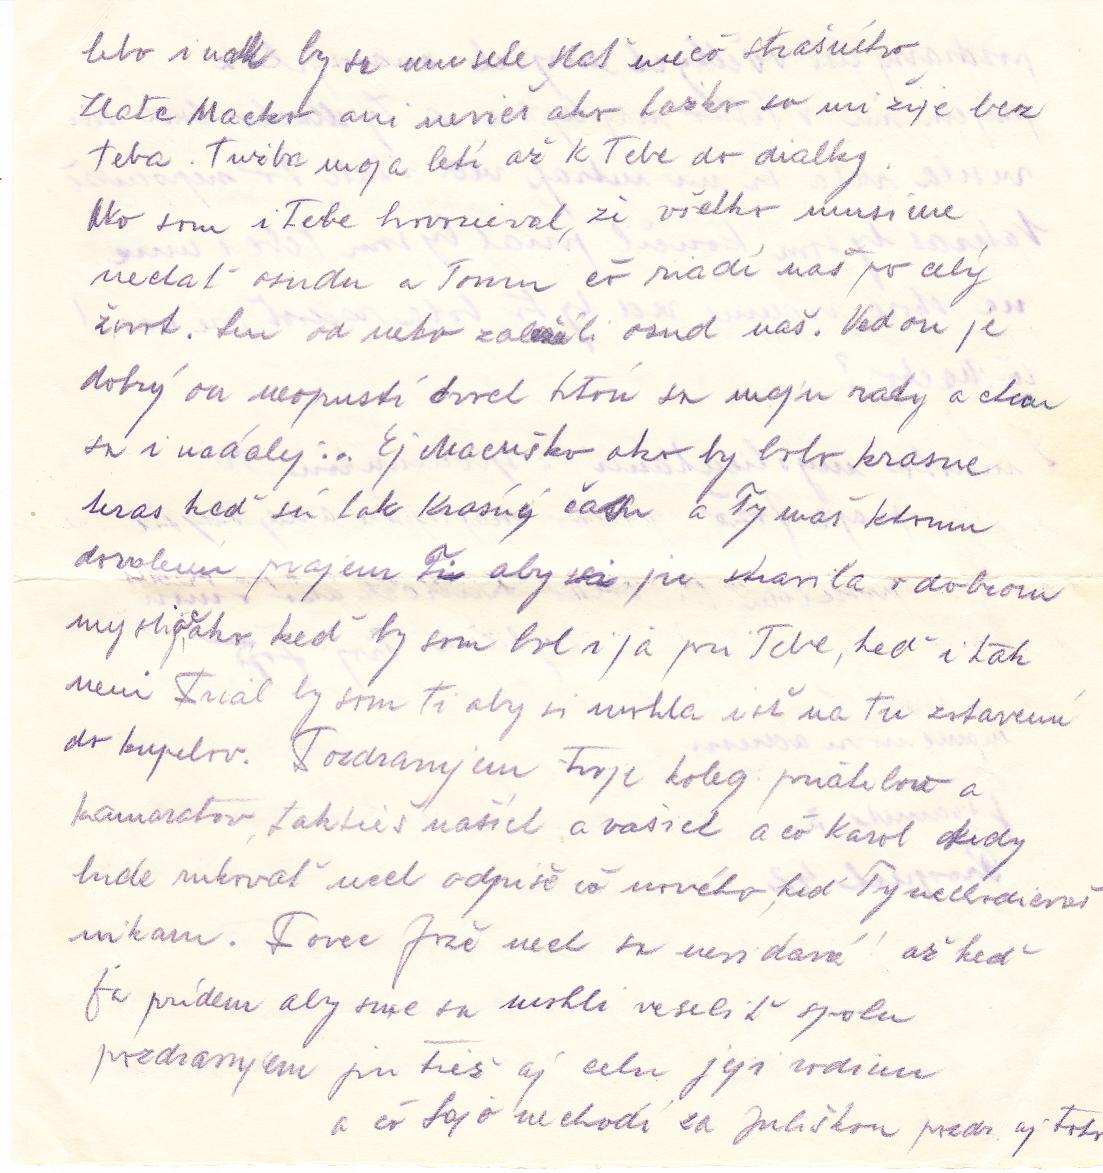 lebo inak by sa musele stať niečo strašného
Zlaté Macko ani nevieš ako ťažko sa mi žije bez
teba. Tužba moja letí až k Tebe do diaľky.
Ako som i Tebe hovorieval, že všetko musíme
nechať osudu a Tomu čo riadi náš po celý
život. Len od neho záleží osud náš. Veď on je
dobrý on neopustí dvoch ktorí sa majú rady a chcú
sa i naďalej... Ej Macuško ako by bolo krasne
teras keď sú tak krasný časi a Ty maš ktomu
dovolenú prajem Ti aby si ju stravila v dobrom
mysli ako keď by som bol i ja pri Tebe, keď i tak
neni Prial by som ti aby si mohla isť na tu zotavenú
do kupelov. Pozdravujem tvoje koleg. priatelov a
kamaratov, taktiež našich a vašich a čo Karol kedy
bude rukovať nech odpiše čo nového, keď Ty nechodievaš
nikam. Povec Jože nech sa nevidavá! až keď
ja prídem aby sme sa mohli veseliť spolu
pozdravujem ju tiež aj celu jeji rodinu
a čo Lajo nechodí za Juliškou pozdr. aj toho